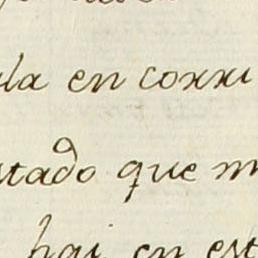 la en corri
tado que m
hai en est